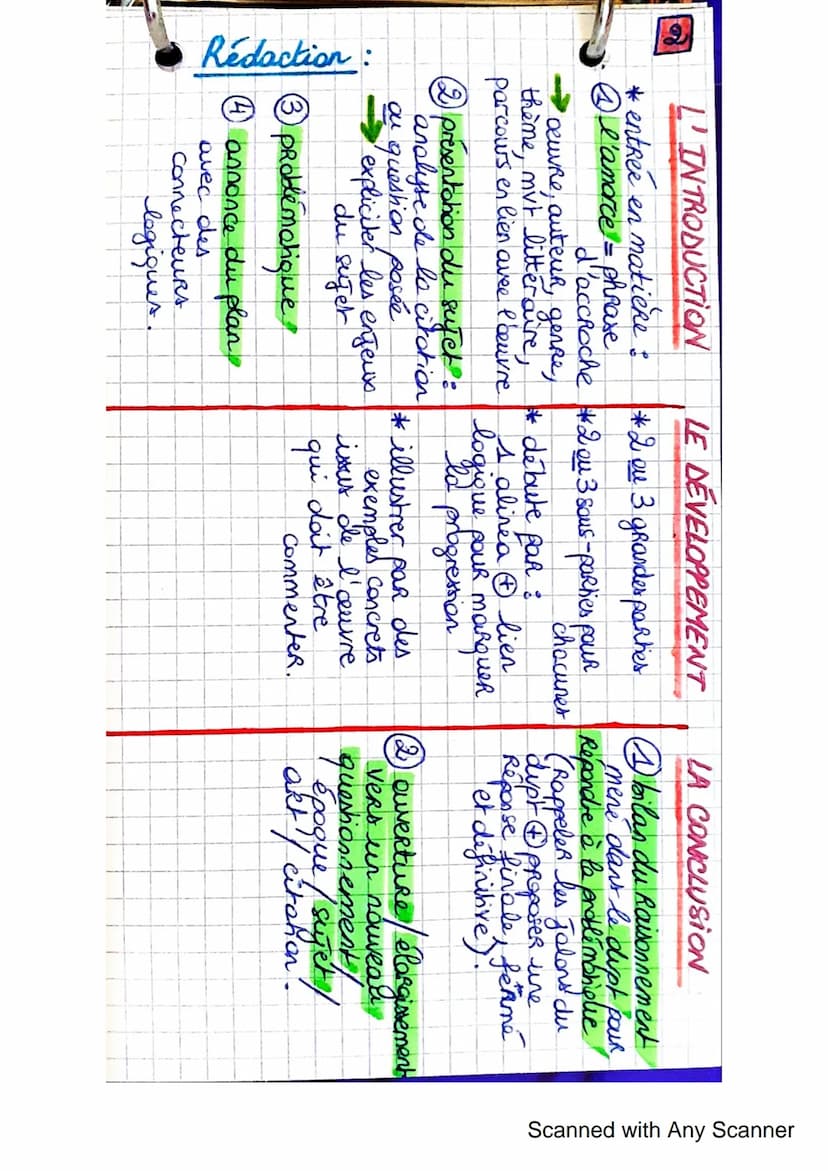 2
Rédaction :
L'INTRODUCTION
* entrée en matière :
① l'amorce = phrase
d'accroche
→ œuvre, auteur, genre,
thème, mvt littéraire,
parcours en lien avec l'œuvre
② présentation du sujet :
analyse de la citation
ou question posée
→ expliciter les enjeux
du sujet
③ problématique
④ annonce du plan
avec des
connecteurs
logiques.
LE DÉVELOPPEMENT
* 2 ou 3 grandes parties
* 2 ou 3 sous-parties pour
chacunes
* débute par :
1 alinéa ⊕ lien
logique pour marquer
la progression
* illustrer par des
exemples concrets
issus de l'œuvre
qui doit être
commenter.
LA CONCLUSION
① bilan du raisonnement
mené dans le dvpt pour
Répondre à la problématique
(Rappeler les jalons du
dvpt ⊕ proposer une
Réponse finale, ferme
et définitive).
② ouverture / élargissement
vers un nouveau
questionnement /
époque / sujet /
art / citation.
Scanned with Any Scanner